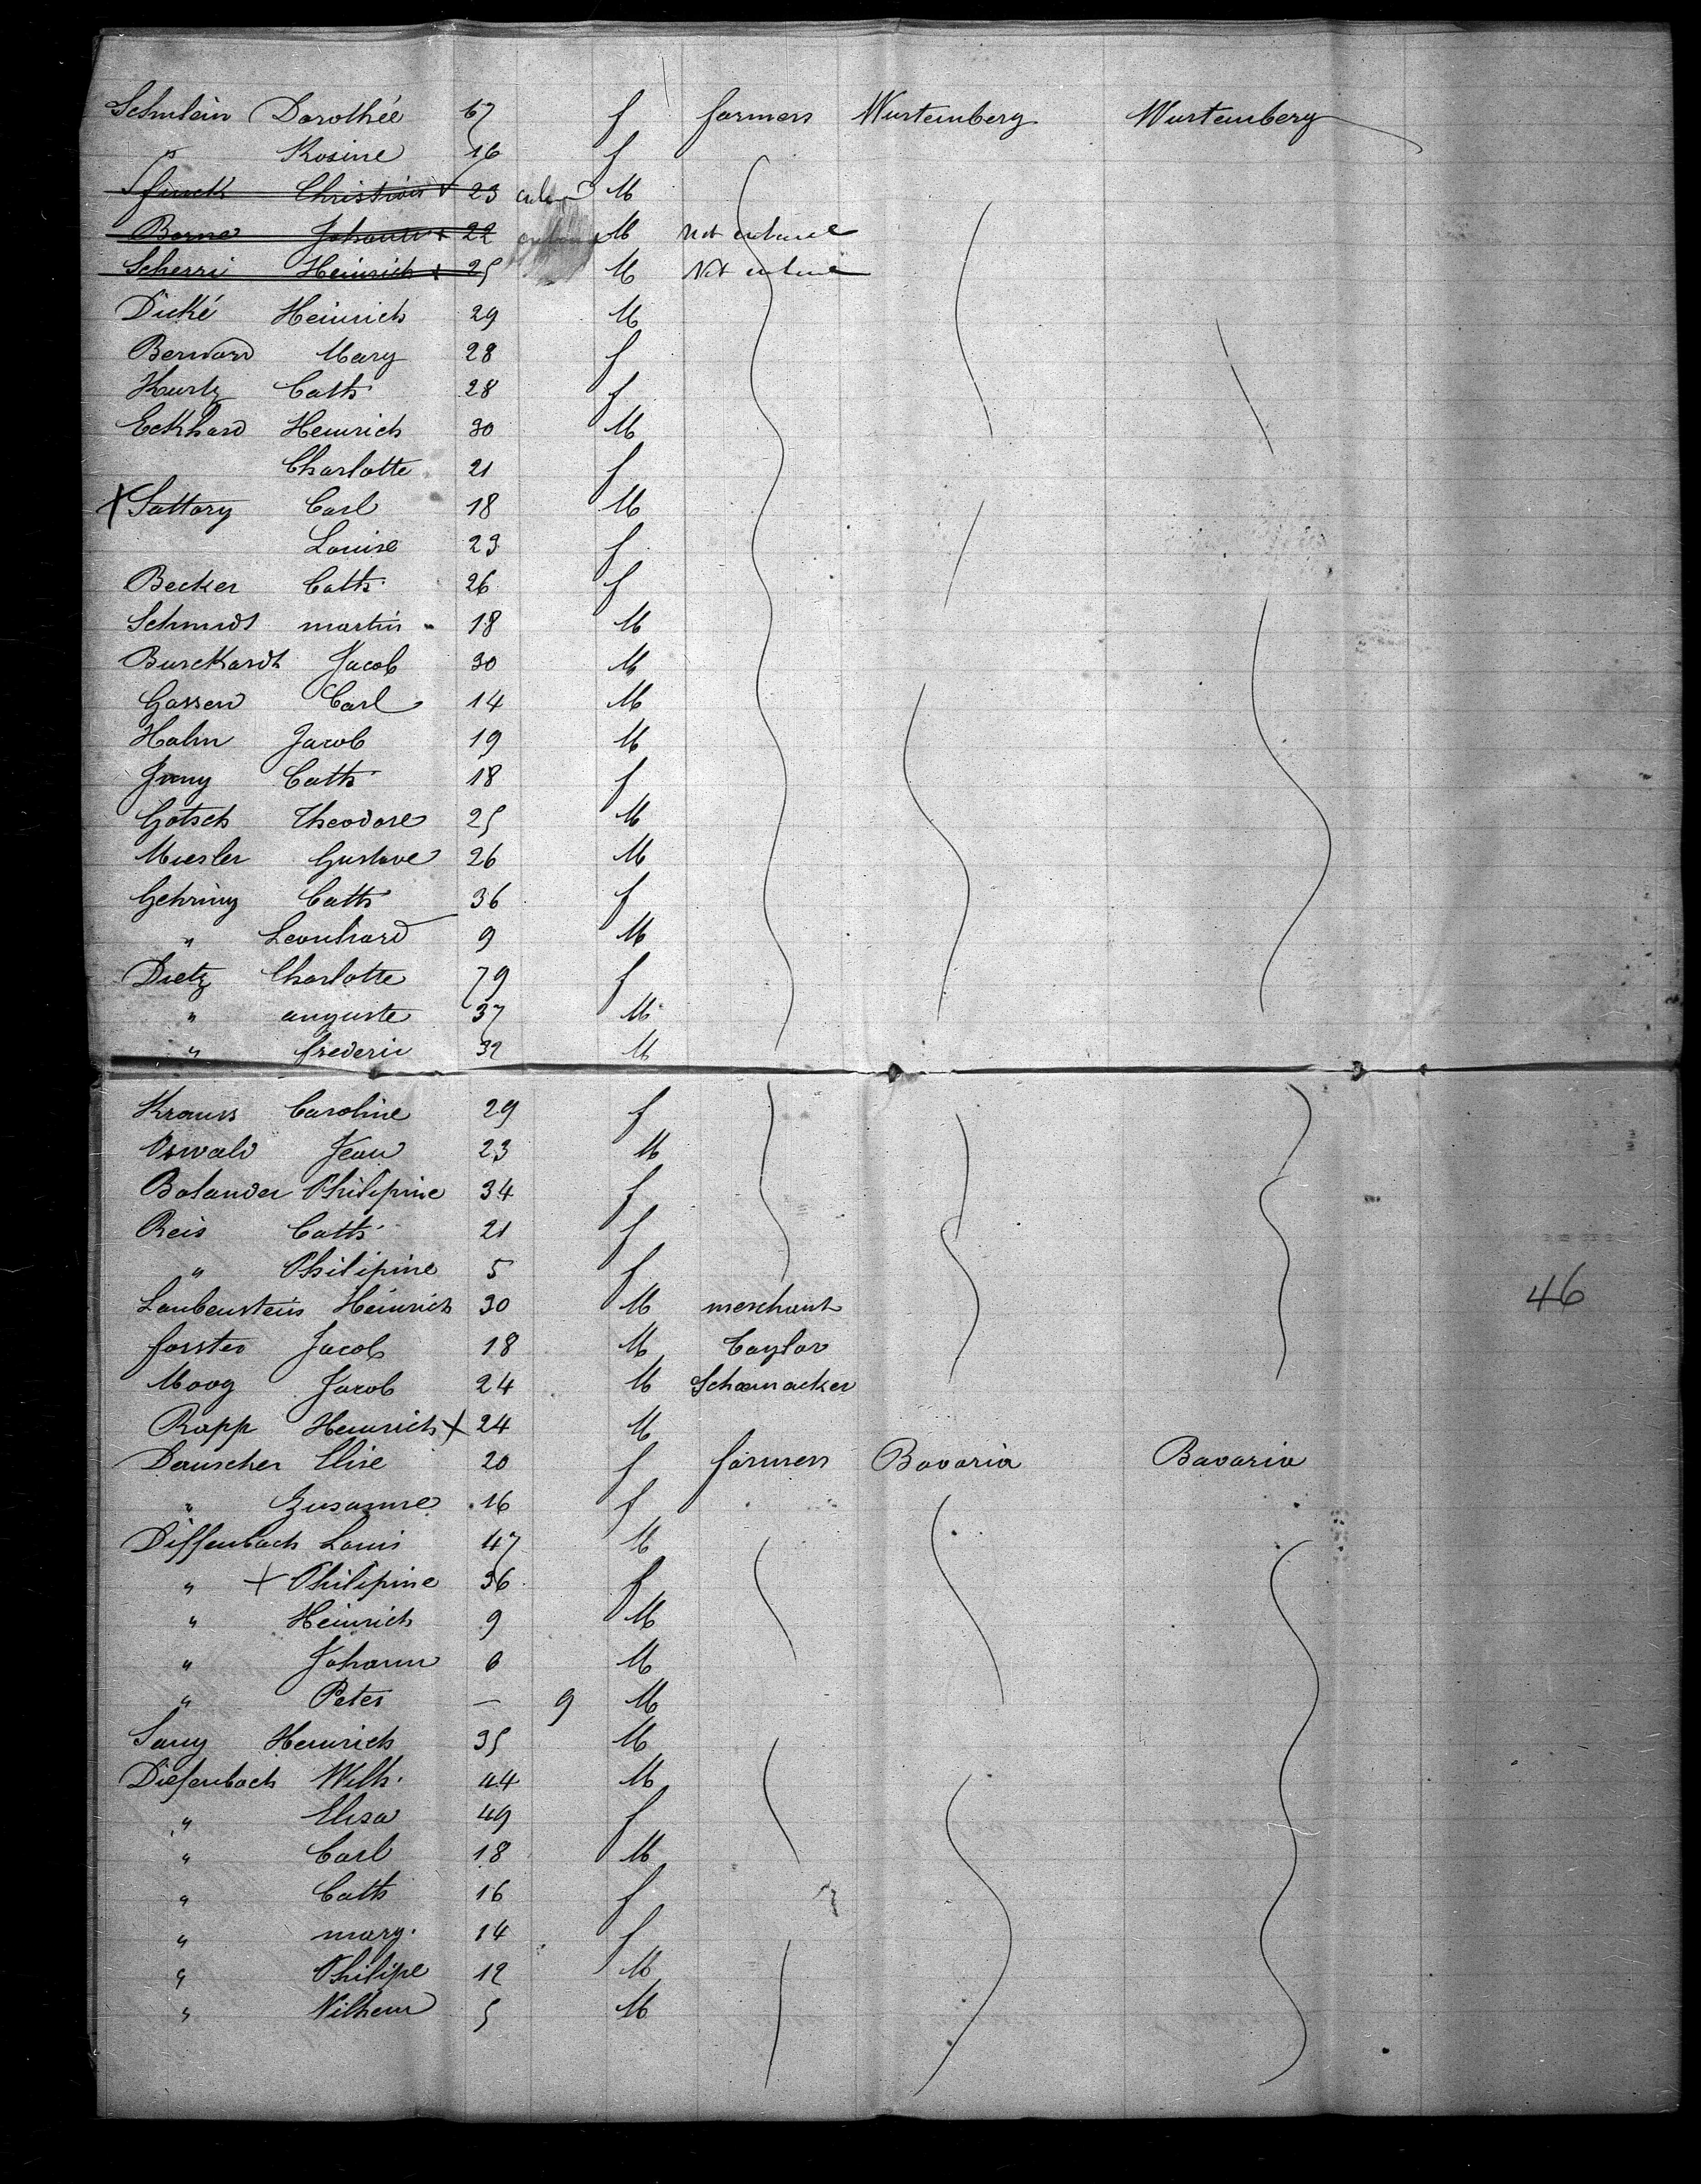 Schulein Dorothée 67 f farmers Wurtemberg Wurtemberg
" Rosine 16 f
Christian 23 M
Borne Johann + 22 M Not
Scherri Heinrich + 25 M Not
Dické Heinrich 29 M
Bernard Mary 28 f
Kurtz Cath. 28 f
Eckhard Heinrich 30 M
Charlotte 21 f
+ Sattory Carl 18 M
Louise 23 f
Becker Cath. 26 f
Schmidt martin 18 M
Burckardt Jacob 30 M
Gassen Carl 14 M
Hahn Jacob 19 M
Jung Cath. 18 f
Gotsch Theodore 25 M
Miesler Gustave 26 M
Gehring Cath 36 f
" Leonhard 9 M
Dietz Charlotte 79 f
" auguste 37 M
" frederic 32 M
Krauss Caroline 29 f
Oswald Jean 23 M
Bolander Philipine 34 f
Reis Cath. 21 f
" Philipine 5 f
Laubenstein Heinrich 30 M merchant 46
forster Jacob 18 M Taylor
Moog Jacob 24 M Schoemacker
Rapp Heinrich + 24 M
Dauscher Elise 20 f farmers Bavaria Bavaria
" Zusanne 16 f
Diffenbach Louis 47 M
" + Philipine 36 f
" Heinrich 9 M
" Johann 6 M
" Peter — 9 M
Heinrich 35 M
Diefenbach Wilh. 44 M
" Elisa 49 f
" Carl 18 M
" Cath 16 f
" marg. 14 f
" Philipe 12 M
" Wilhem 5 M